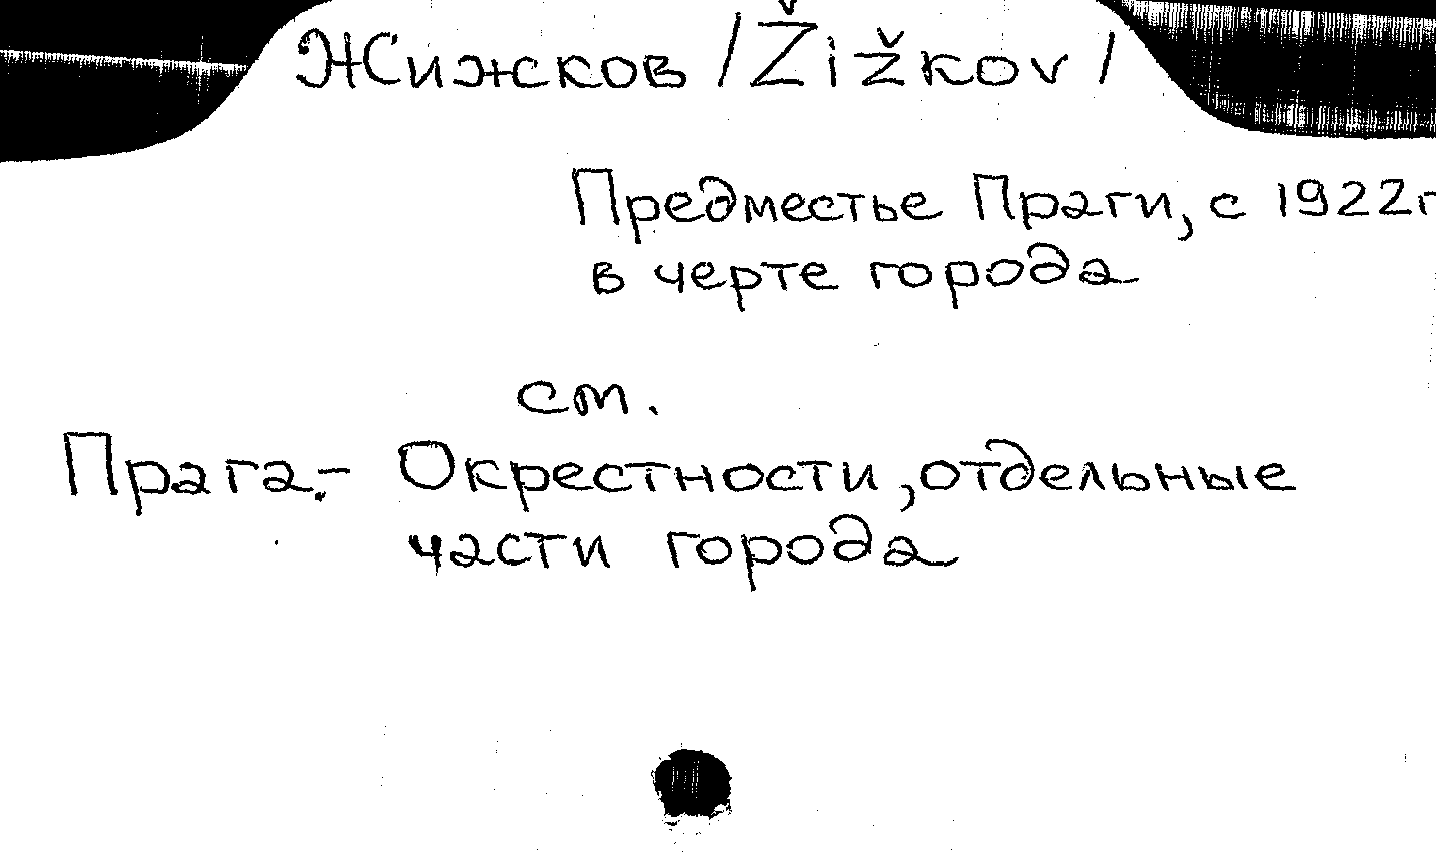 Жижков /Žižkov/
Предместье Праги, с 1922г
в черте города
см.
Прага.- Окрестности, отдельные
части города